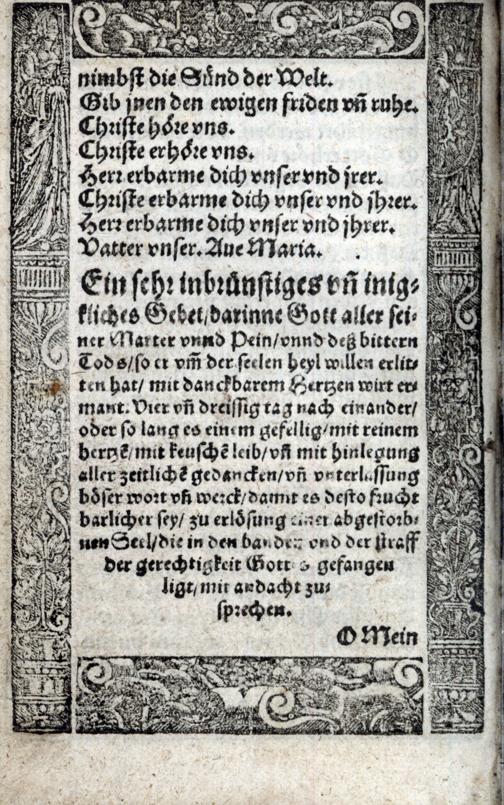 nimbst die Sünd der Welt.
Gib jnen den ewigen friden vñ ruhe.
Christe höre vns.
Christe erhöre vns.
Herr erbarme dich vnser vnd jrer.
Christe erbarme dich vnser vnd jhrer.
Herr erbarme dich vnser vnd jhrer.
Vatter vnser. Aue Maria.
Ein sehr inbrünstiges vñ inig⸗
kliches Gebet/darinne Gott aller sei⸗
ner Marter vnnd Pein/vnnd deß bittern
Tods/so er vm̃ der seelen heyl willen erlit⸗
ten hat/ mit danckbarem Hertzen wirt er⸗
mant. Vier vñ dreissig tag nach einander/
oder so lang es einem gefellig/mit reinem
hertzẽ/ mit keuschẽ leib/vñ mit hinlegung
aller zeitlichẽ gedancken/vñ vnterlassung
böser wort vñ werck/damit es desto frucht
barlicher sey/ zu erlösung einer abgestorb⸗
nen Seel/die in den banden vnd der straff
der gerechtigkeit Gottes gefangen
ligt/mit andacht zu⸗
sprechen.
O Mein